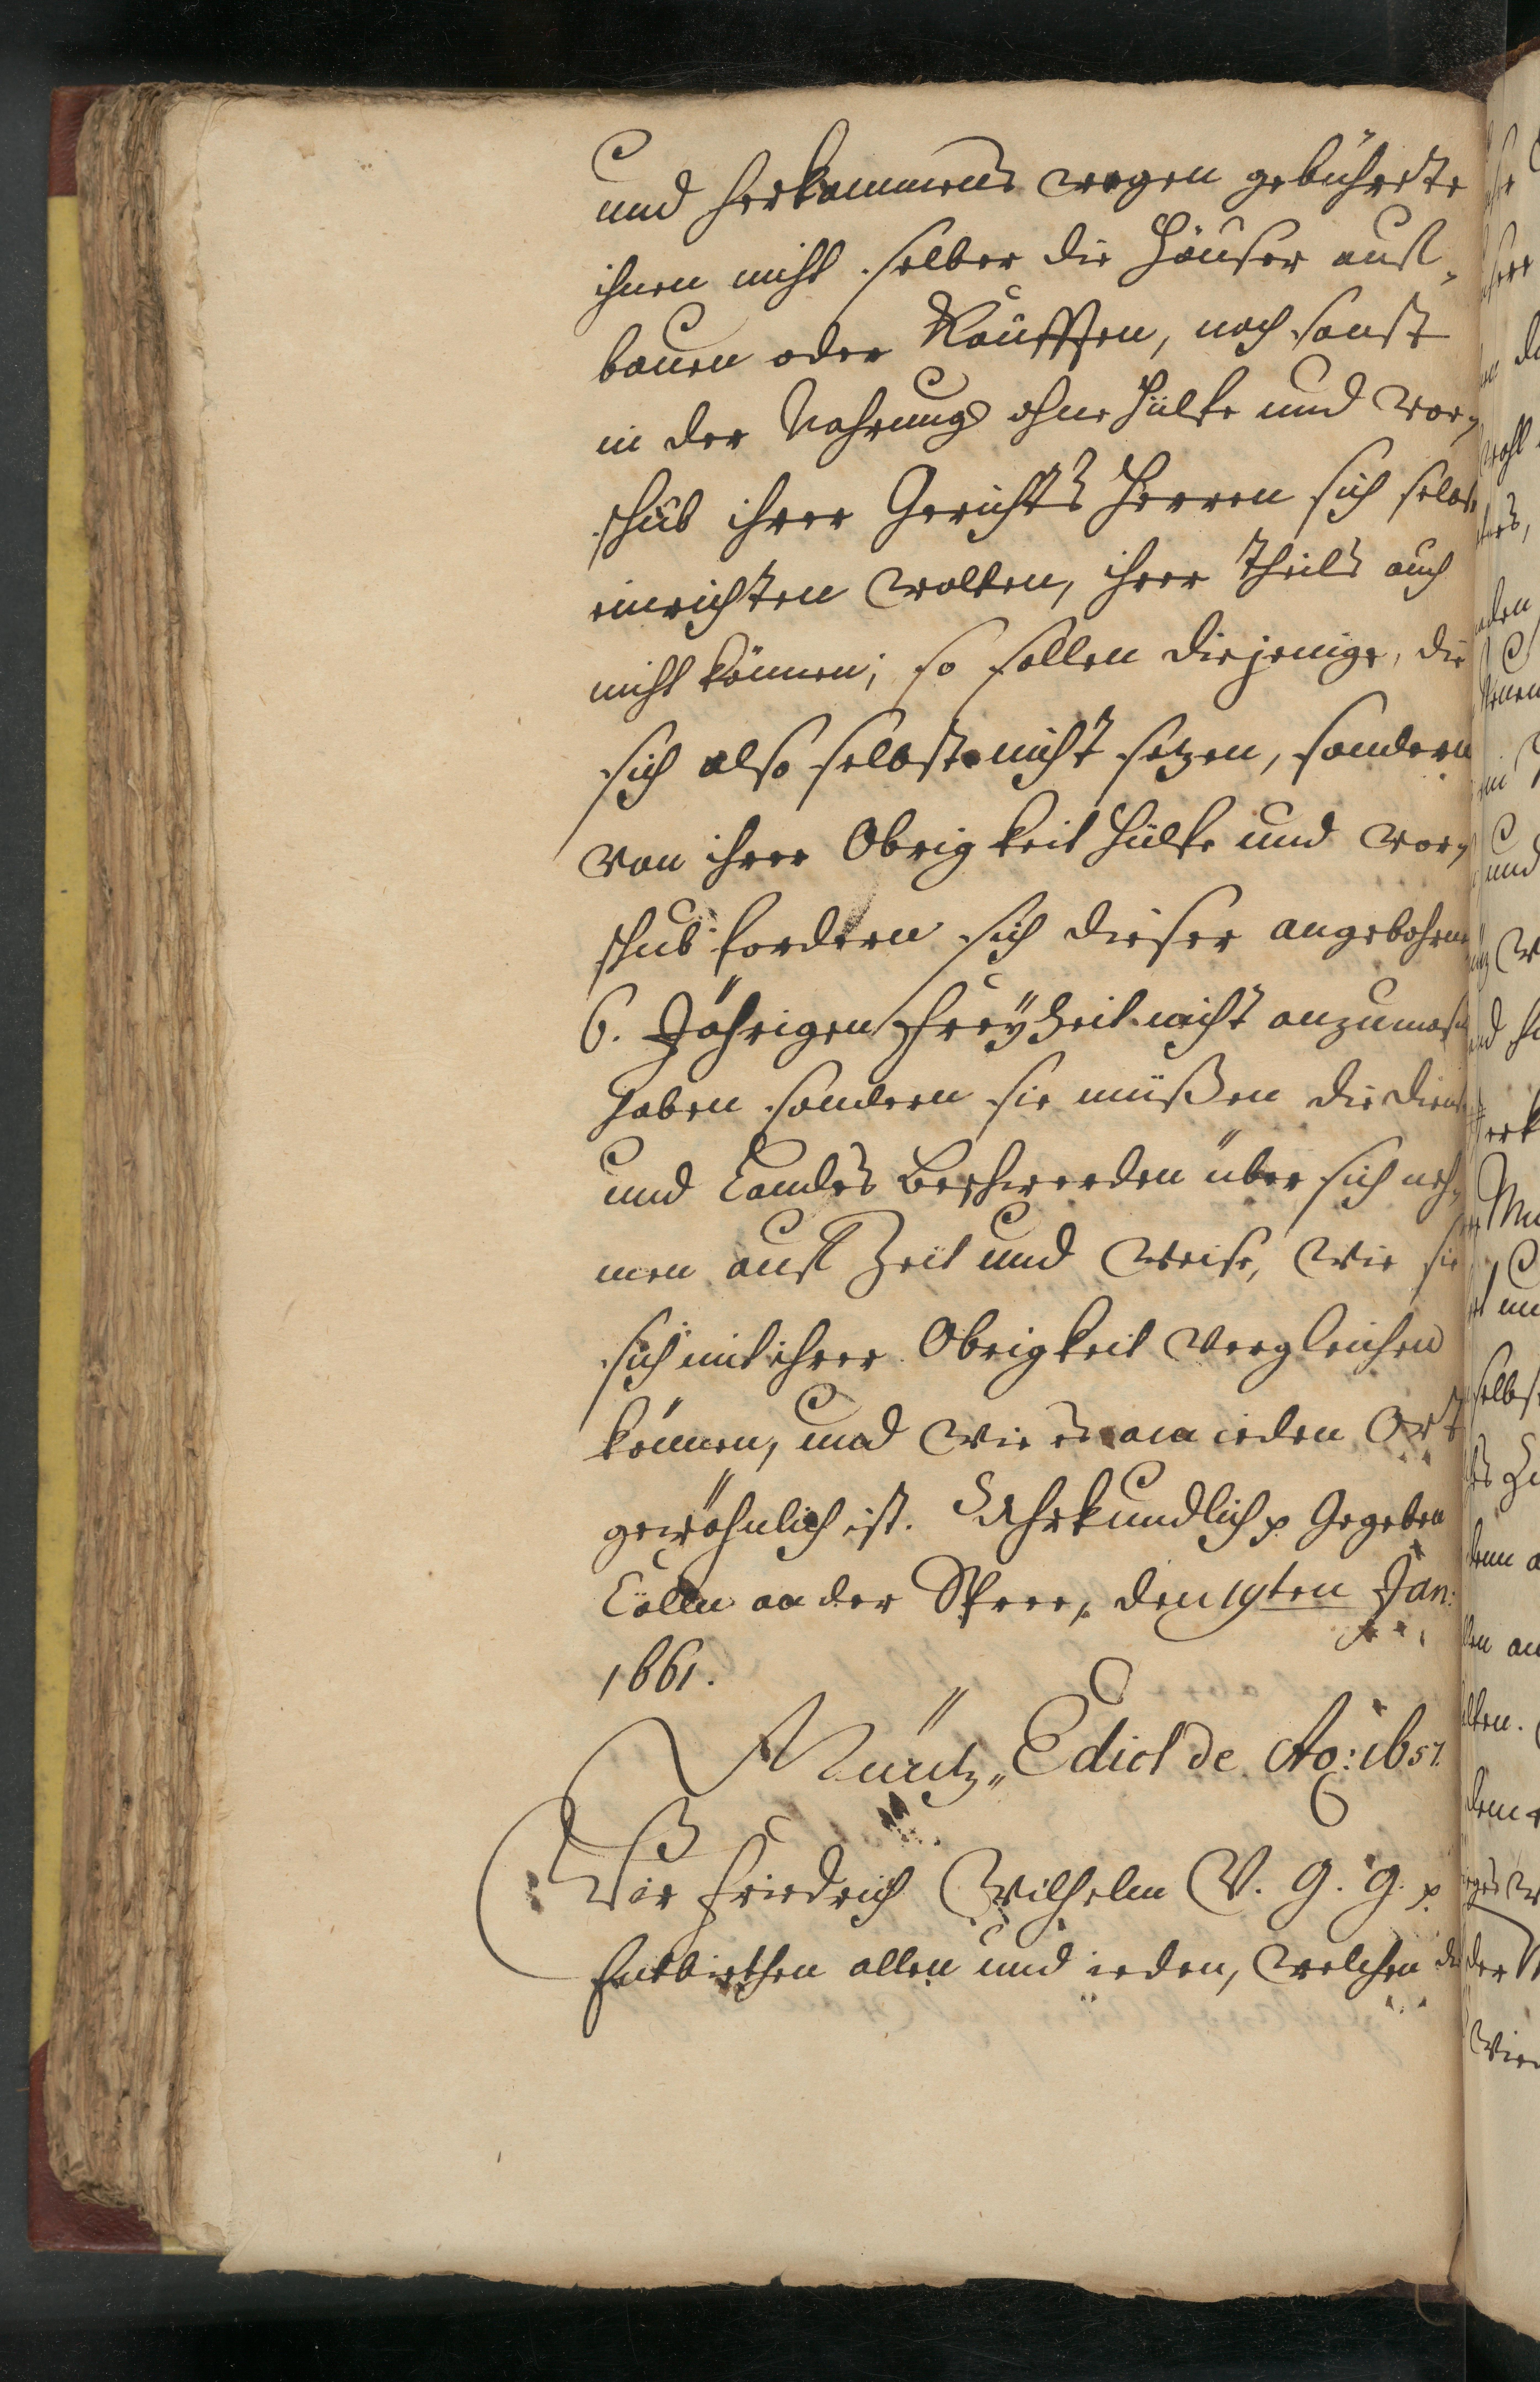 und Herkommens wegen gebührte
ihnen nicht selber die Häuser auff-
bauen oder Kauffen, noch sonst
in der Nahrung ohne Hülfe und vor-
schub ihrer Gerichts Herren sich selbst
einrichten wolten, ihrer theils auch
nicht können; so sollen diejenige, die
sich also selbst nicht setzen, sondern
von ihrer Obrigkeit Hülfe und vor-
schub fordern sich dieser angebohrne
6. Jährigen Freyheit nicht anzumaßen
haben sondern sie müßen die Dienste
und Landes Beschwerden über sich neh-
men auff Zeit und Weise, wie sie
sich mit ihrer Obrigkeit vergleichen
können, und wie es am jeden Ort
gewöhnlich ist. Uhrkundlich p Gegeben
Cölln an der Spree, den 19ten Jan:
1661.
Müntz-Edict de Ao: 1651.
Wir Friedrich Wilhelm V. G. G. p
Entbiethen allen und jeden, welchen